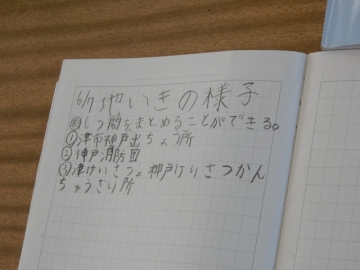 6/7 地いきの様子
めしつ問をまとめることができる。
①津市神戸出ちょう所
②神戸消防団
③津けいさつ、神戸けいさつかん
ちゅうざい所